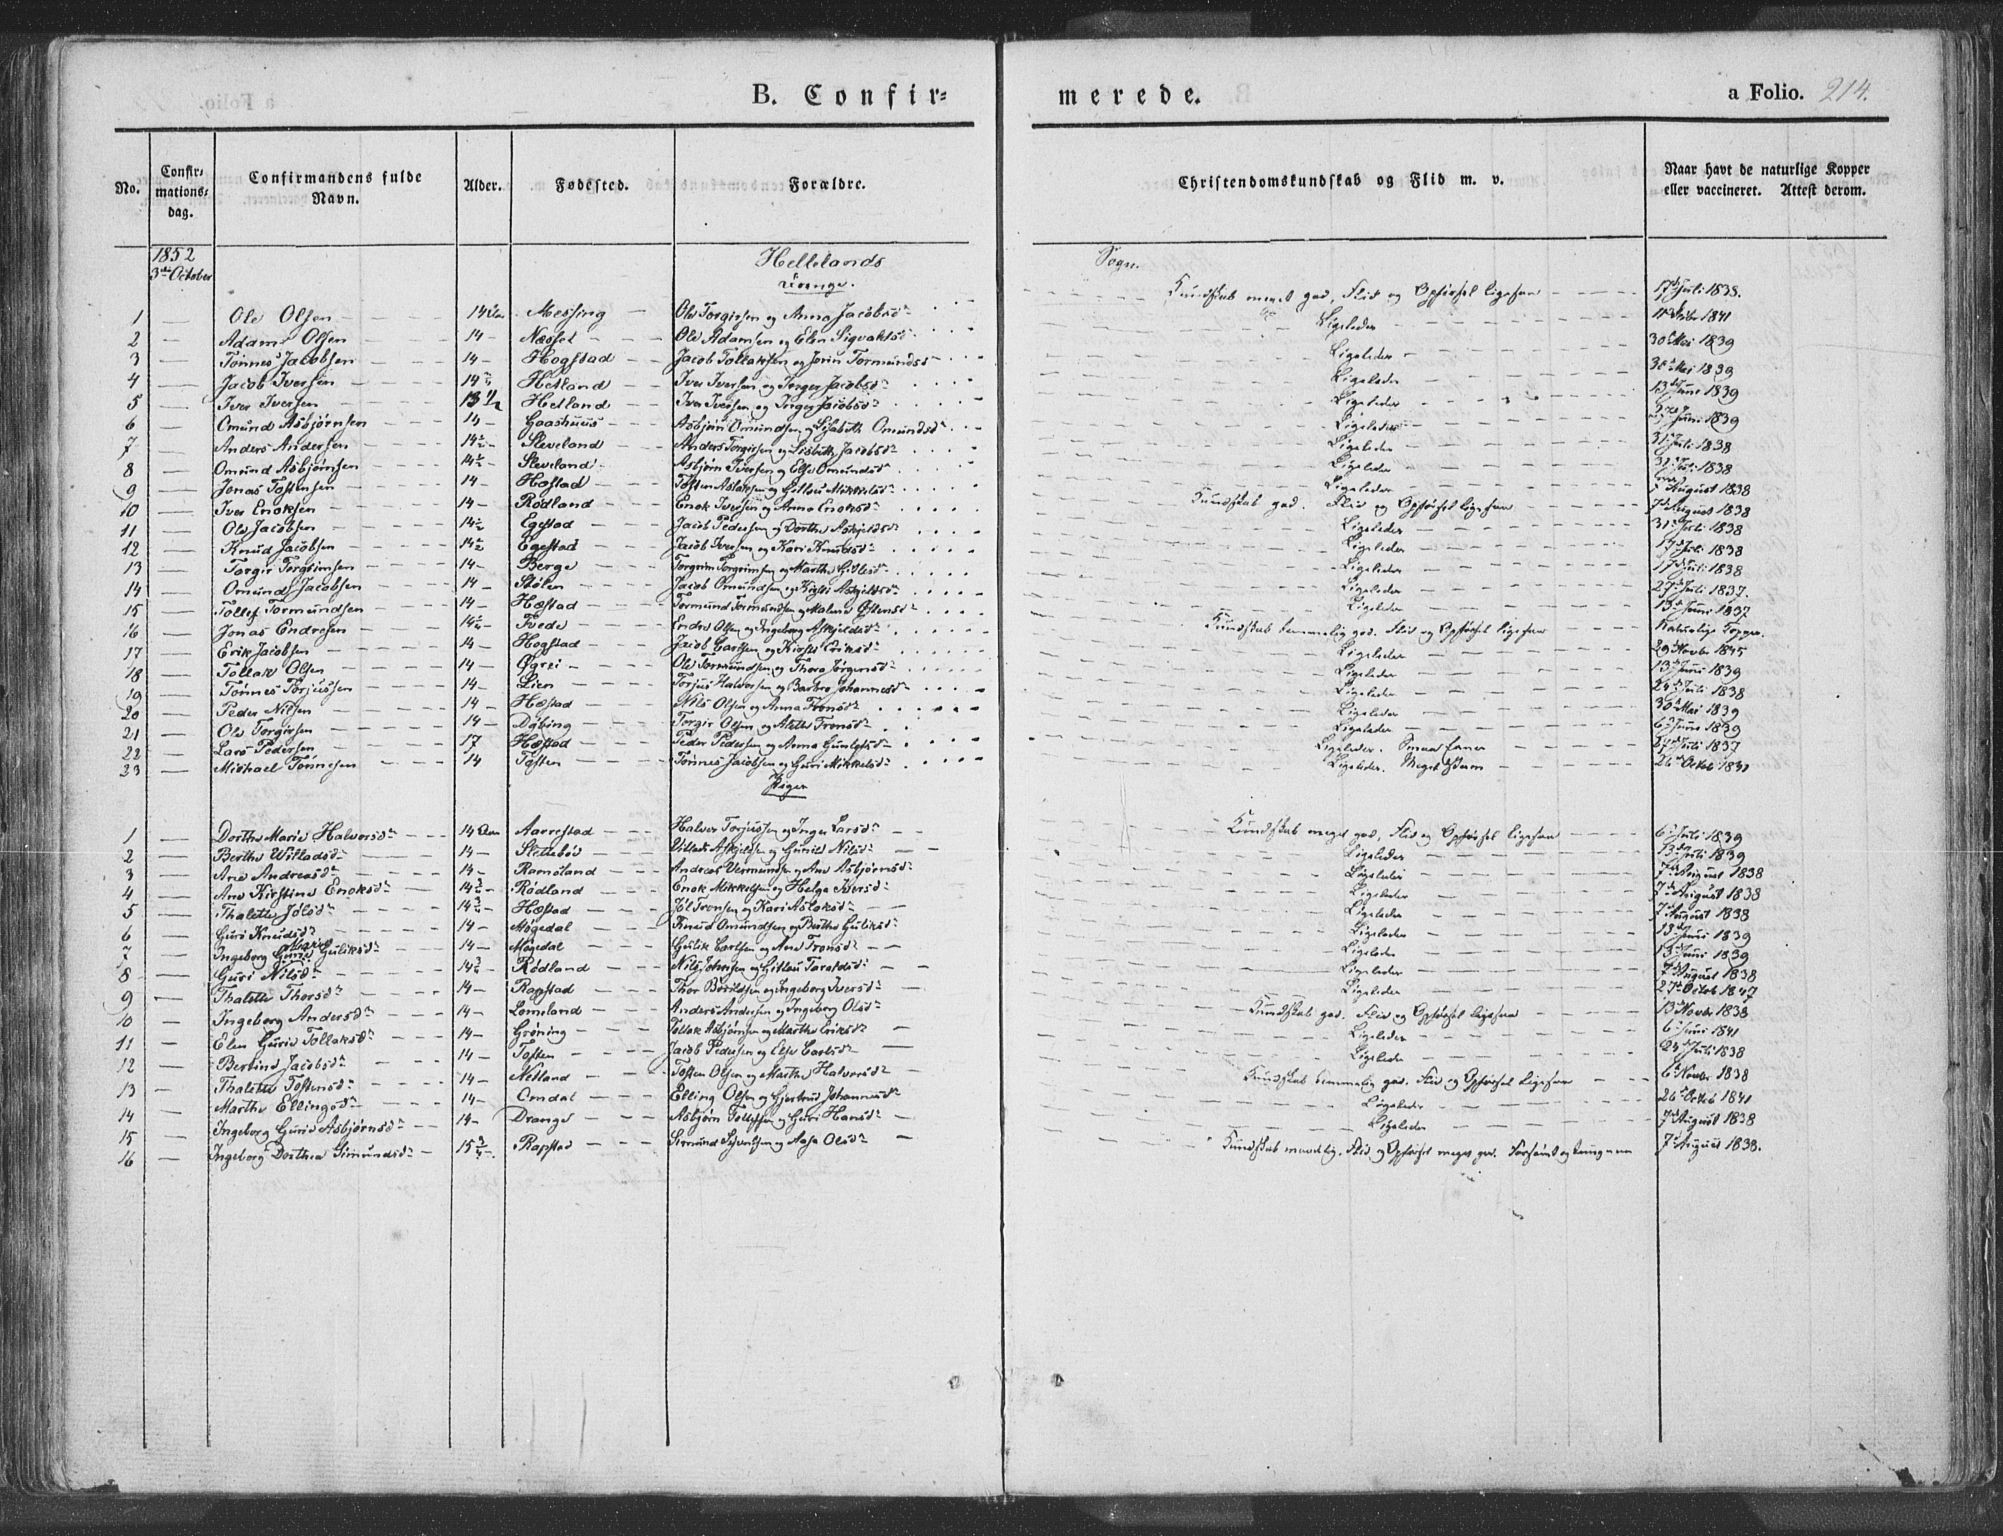 B. Confirmerede.
a Folio. 214.
No. Confirmationsdag. Confirmandens fulde Navn. Alder. Fødested. Forældre. Christendomskundskab og Flid m. v. Naar havt de naturlige Kopper eller vaccineret. Attest derom.
1852
3die October
Hellelands Sogn.
Drenge.
1 — Ole Olsen 14 Messing Ole Torgersen og Anna Jacobsdr Kundskab meget god, Flid og Opførsel ligesaa 17de Juli 1838.
2 — Adam Olsen 14 Næsset Ole Adamsen og Elen Sigvaldsdr Ligeledes 1841
3 — Tønnes Jacobsen 14 Hogstad Jacob Tollaksen og Jorin Tormundsdr Ligeledes 30 Mai 1839
4 — Jacob Iversen 14 Hetland Iver Iversen og Inger Jacobsdr Ligeledes 30 Mai 1839
5 — Iver Iversen 15 1/2 Hetland Iver Iversen og Inger Jacobsdr Ligeledes 13 Juni 1839
6 — Omund Asbjørnsen 14 Gaashuus Asbjørn Omundsen og Lisabeth Omundsdr Ligeledes Juni 1839
7 — Anders Andersen 14 Sleveland Anders Torgersen og Lisbeth Jacobsdr Ligeledes 31 Juli 1838
8 — Omund Asbjørnsen 14 Sleveland Asbjørn Iversen og Else Omundsdr Ligeledes 31 Juli 1838
9 — Jonas Tostensen 14 Hæstad Tosten Aslaksen og Gitlau Mikkelsdr Ligeledes 7 August 1838
10 — Iver Enoksen 14 Rødland Enok Iversen og Anna Enoksdr Kundskab god. Flid og Opførsel ligesaa 7 August 1838
11 — Ole Jacobsen 14 Egestad Jacob Pedersen og Dorthe Askjeldsdr Ligeledes 31 Juli 1838
12 — Knud Jacobsen 14 Egestad Jacob Iversen og Kari Knudsdr Ligeledes 17 Juli 1838
13 — Torger Torgrimsen 14 Berge Torgrim Torgrimsen og Marthe Ligeledes 17 Juli 1838
14 — Omund Jacobsen 14 Stølen Jacob Omundsen og Kirsti Askjeldsdr Ligeledes 27 Juli 1837.
15 — Tollef Tormundsen 14 Hæstad Tormund Tormundsen og Malene Østensdr Ligeledes 13 Juni 1837
16 — Jonas Endresen 14 Tvede Endre Olsen og Ingeborg Askjeldsdr Kundskab temmelig god. Flid og Opførsel ligesaa Naturlige Kopper.
17 — Erik Jacobsen 14 Hogstad Jacob Carlsen og Kirsti Eriksdr Ligeledes 29 Novbr 1845
18 — Tollak Olsen 14 Øgrei Ole Tormundsen og Thora Jørgensdr Ligeledes 13 Juni 1839
19 — Tønnes Torjussen 14 Lien Torjus Halvorsen og Barbro Johannesdr Ligeledes 24 Juli 1838
20 — Peder Nilsen 14 Hæstad Nils Olsen og Anna Tronsdr Ligeledes 30 Mai 1839
21 — Ole Torgersen 14 Dybing Torger Olsen og Alethe Tronsdr Ligeledes 6 Juni 1839
22 — Lars Pedersen 17 Hæstad Peder Pedersen og Anna Ligeledes. Smaa Evner 27 Juli 1837
23 — Michael Tønnesen 14 Tosten Tønnes Jacobsen og Guri Mikkelsdr Ligeledes. 26 Octob 1841
Piger
1 — Dorthe Marie Halvorsdr 14 Aarrestad Halvor Torjussen og Inger Larsdr Kundskab meget god, Flid og Opførsel ligesaa 6 Juli 1839
2 — Berthe Willadsdr 14 Slettebø Villads Askjelsen og Gunild Nilsdr Ligeledes 13 Juli 1839
3 — Ane Andreasdr 14 Ramsland Andreas Vermundsen og Ane Asbjørnsdr Ligeledes 7 August 1838
4 — Ane Kirstine Enoksdr 14 3/4 Rødland Enok Mikkelsen og Helga Iversdr Ligeledes 7 August 1838
5 — Thalette Jølsdr 14 3/4 Hæstad Jøl Tronsen og Kari Aslaksdr Ligeledes 7 August 1838
6 — Guri Knudsdr 14 Møgedal Knud Omundsen og Berthe Guliksdr Ligeledes 13 Juni 1839
7 — Ingeborg Marie Guliksdr 14 Møgedal Gulik Carlsen og Ane Tronsdr Ligeledes 13 Juni 1839
8 — Guri Nilsdr 14 3/4 Rødland Nils Johnsen og Gitlau Taraldsdr Ligeledes 7 August 1838
9 — Thalette Thorsdr 14 Rapstad Thor Bereldsen og Ingeborg Iversdr Ligeledes 27 Octob 1847
10 — Ingeborg Andersdr 14 Lomeland Anders Andersen og Ingeborg Olsdr Kundskab god. Flid og Opførsel ligesaa 13 Novbr 1838
11 — Elen Gurie Tollaksdr 14 Grøning Tollak Asbjørnsen og Marthe Eriksdr Ligeledes 6 Juni 1841
12 — Berlind Jacobsdr 14 Tosten Jacob Pedersen og Else Carlsdr Ligeledes 24 Juli 1838
13 — Thalette Tostensdr 14 Netland Tosten Olsen og Marthe Halvorsdr Kundskab temmelig god. Flid og Opførsel ligesaa 6 Novbr 1838
14 — Marthe Ellingsdr 14 Omdal Elling Olsen og Gjertrud Johannesdr Ligeledes 26 Octob 1841
15 — Ingeborg Gurie Asbjørnsdr 14 Drange Asbjørn Tollefsen og Guri Hansdr Ligeledes 7 August 1838
16 — Ingeborg Dorthea Simundsdr 15 3/4 Rapstad Simund Sivertsen og Aasa Olsdr Kundskab maadelig. Flid og Opførsel meget god. 7 August 1838.